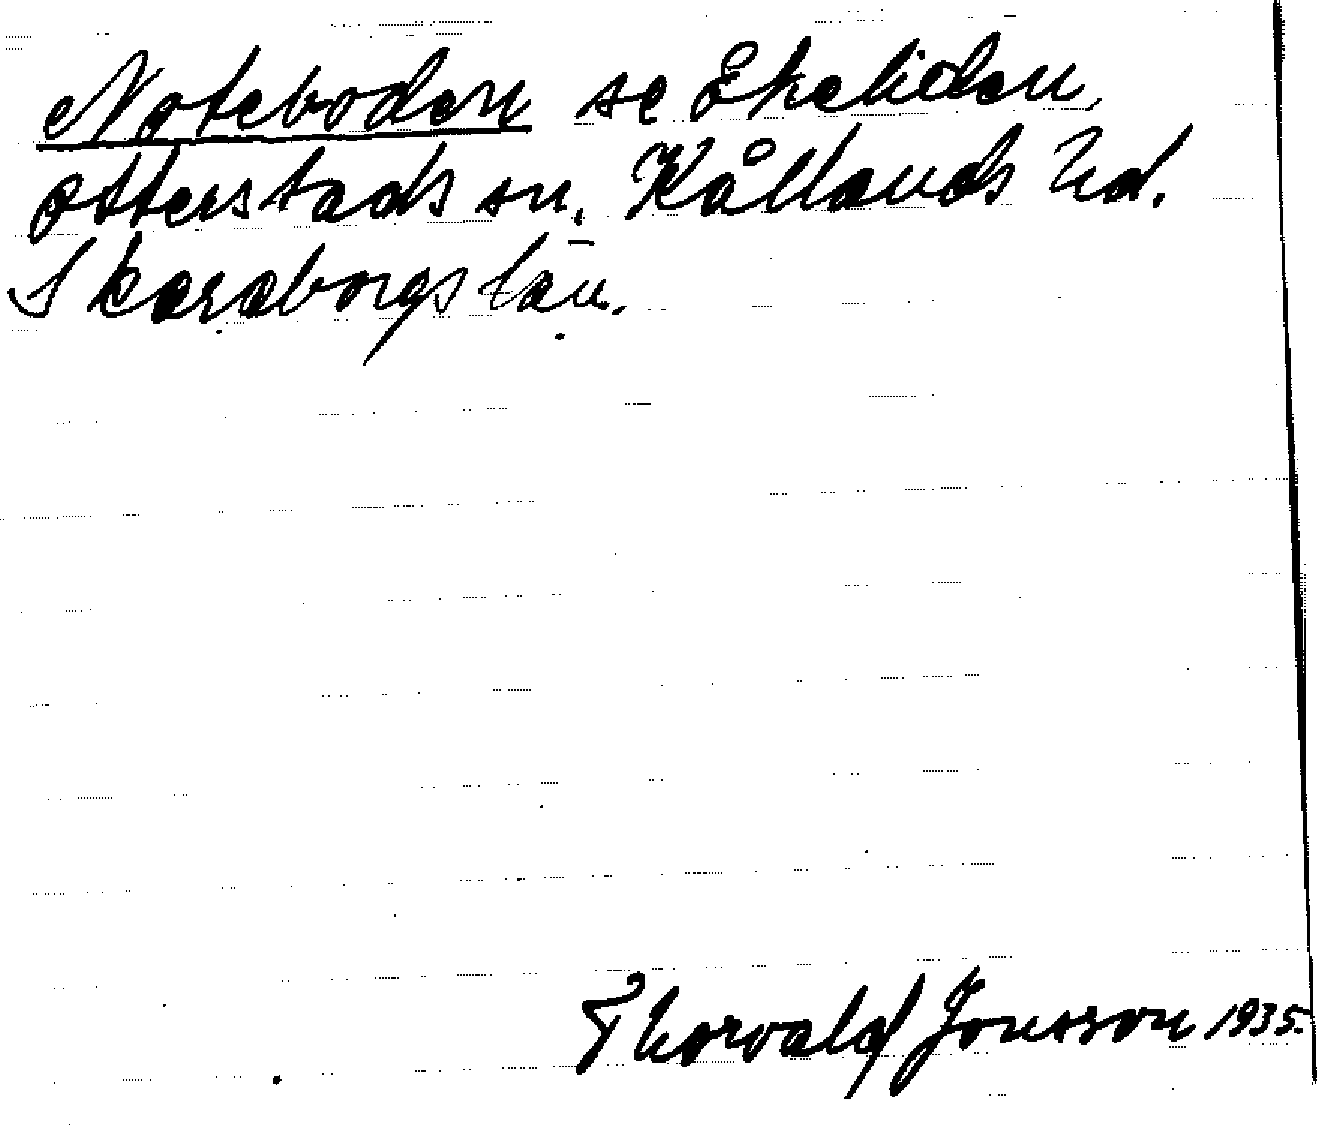 Noteboden se Ekeliden,
Otterstads sn. Kållands hd.
Skaraborgs län.
Thorvald Jonsson 1935.